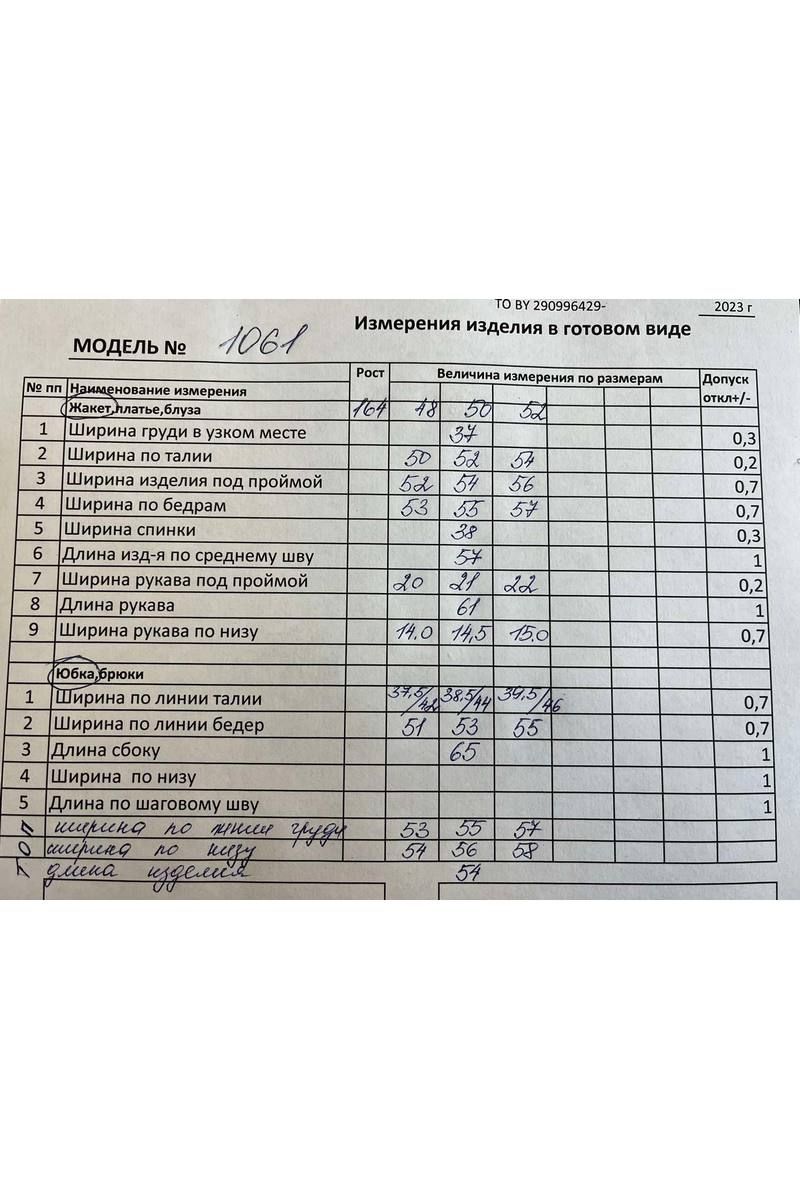 ТО BY 290996429- 2023 г
Измерения изделия в готовом виде
МОДЕЛЬ № 1061
№ пп Наименование измерения Рост Величина измерения по размерам Допуск откл+/-
Жакет,платье,блуза 164 48 50 52
1 Ширина груди в узком месте 37 0,3
2 Ширина по талии 50 52 54 0,2
3 Ширина изделия под проймой 52 54 56 0,7
4 Ширина по бедрам 53 55 57 0,7
5 Ширина спинки 38 0,3
6 Длина изд-я по среднему шву 57 1
7 Ширина рукава под проймой 20 21 22 0,2
8 Длина рукава 61 1
9 Ширина рукава по низу 14.0 14,5 15.0 0,7
Юбка,брюки
1 Ширина по линии талии 37,5/42 38,5/44 39,5/46 0,7
2 Ширина по линии бедер 51 53 55 0,7
3 Длина сбоку 65 1
4 Ширина по низу 1
5 Длина по шаговому шву 1
ТОП ширина по линии груди 53 55 57
ширина по низу 54 56 58
длина изделия 54